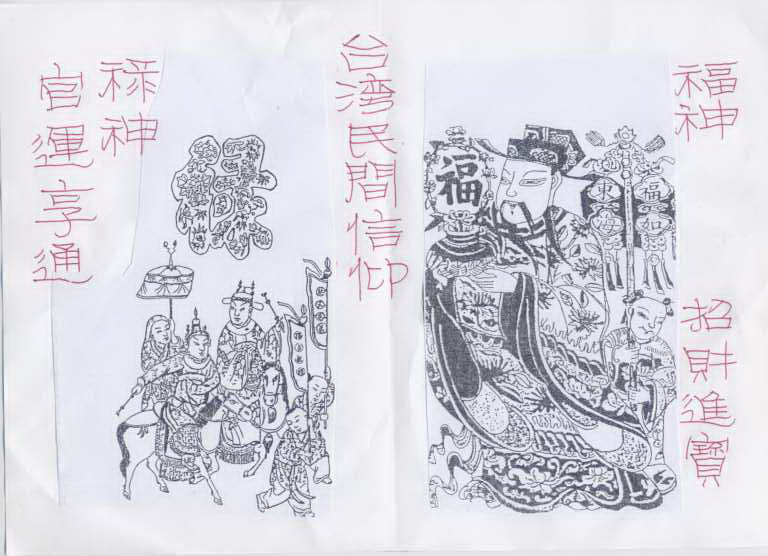 福神
招財進寶
福如
東海
福
台湾民間信仰
禄神
官運享通